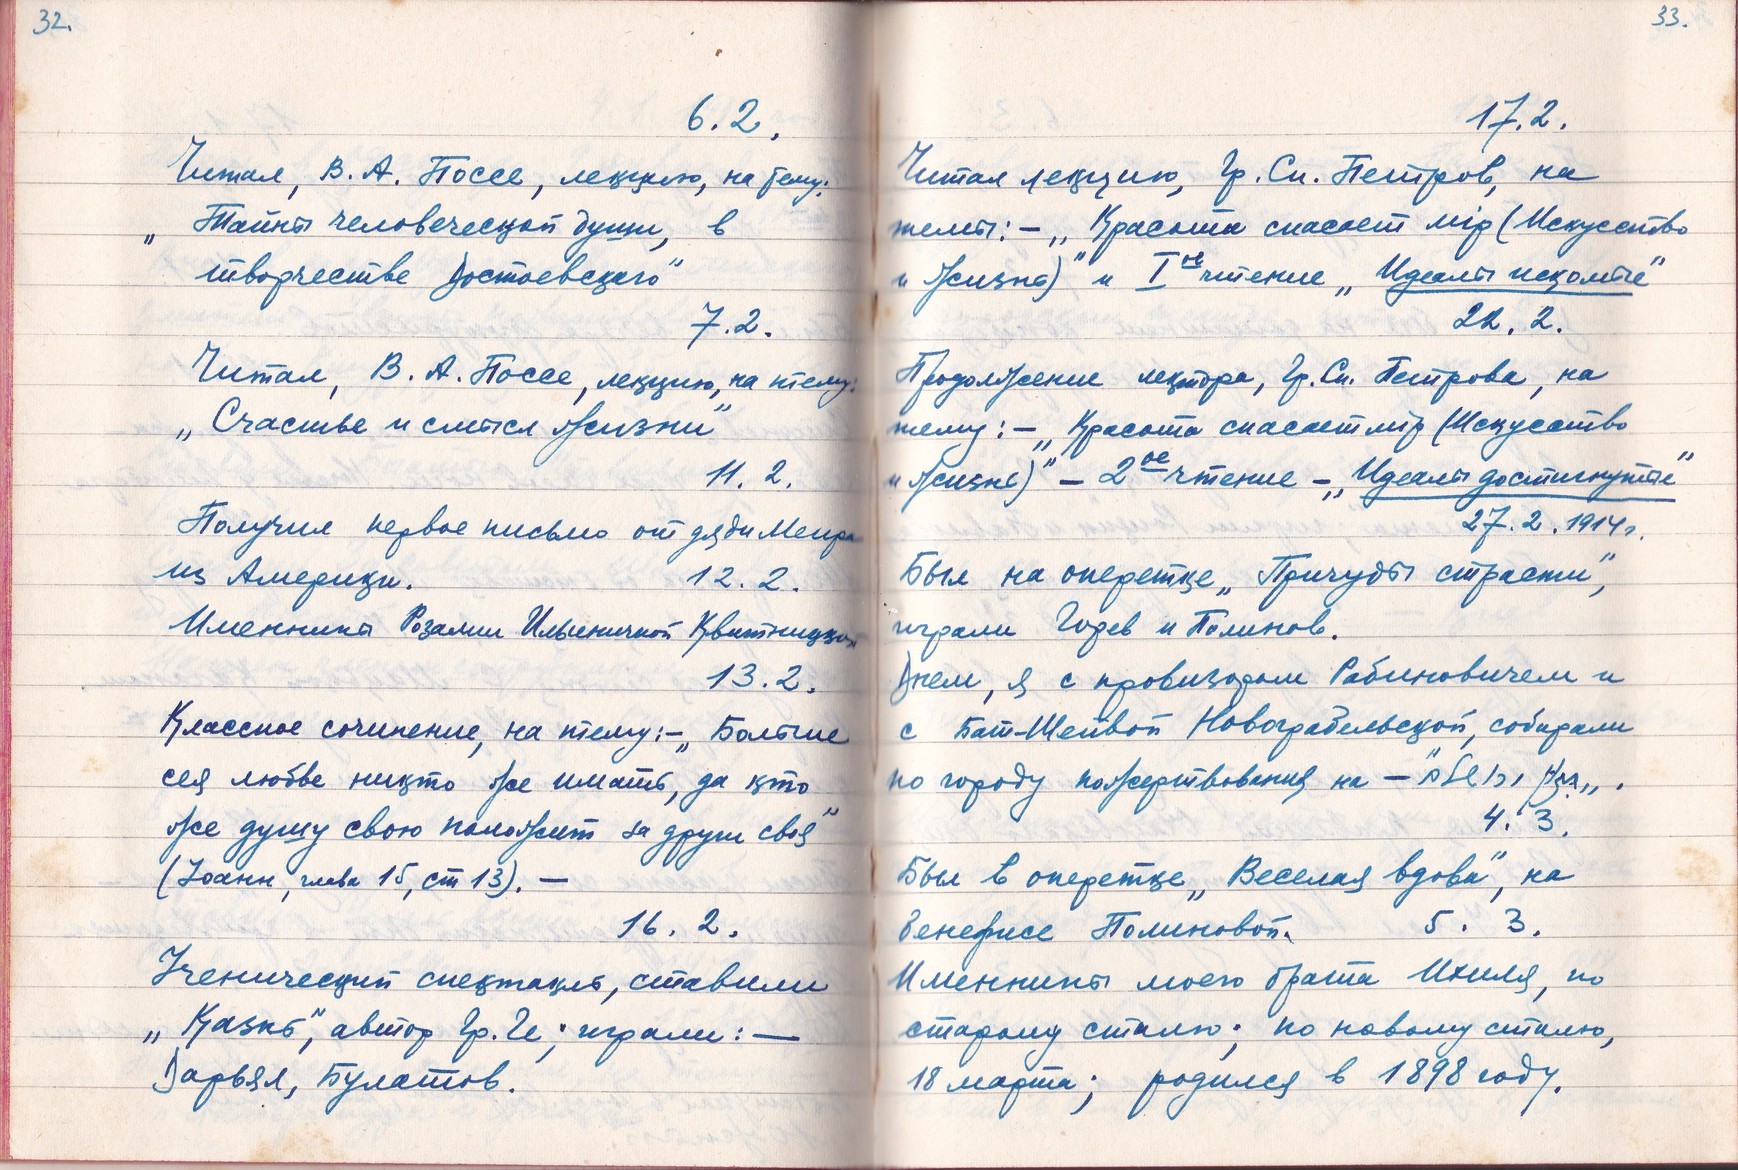 32.
6.2.
Читал, В. А. Поссе, лекцию, на тему:
„Тайны человеческой души, в
творчестве Достоевского“
7.2.
Читал, В. А. Поссе, лекцию, на тему:
„Счастье и смысл жизни“
11. 2.
Получил первое письмо от дяди Меира
из Америки. 12. 2.
Именины Розалии Ильиничной Квитницкой
13. 2.
Классное сочинение, на тему:- „Больше
сея любве никто же имать, да кто
же душу свою положит за други своя“
(Иоанн, глава 15, ст 13). —
16. 2.
Ученический спектакль, ставили
„Казнь“, автор Гр. Ге; играли: —
Дарьял, Булатов.
33.
17. 2.
Читал лекцию, Гр. Сп. Петров, на
темы: — „Красота спасает мiр (Искусство
и жизнь)“ и I ое чтение „Идеалы искомые“
22. 2.
Продолжение лектора, Гр. Сп. Петрова, на
тему: — „Красота спасает мiр (Искусство
и жизнь)“ — 2 ое чтение — „Идеалы достигнутые“
27. 2. 1914 г.
Был на оперетке „Причуды страсти“,
играли Горев и Полинов.
Днем, я с провизором Рабиновичем и
с Бат-Шейвой Новограбельской, собирали
по городу пожертвования на —
4. 3.
Был в оперетке „Веселая вдова“, на
бенефисе Полиновой. 5. 3.
Именины моего брата Ихиля, по
старому стилю; по новому стилю,
18 марта; родился в 1898 году.